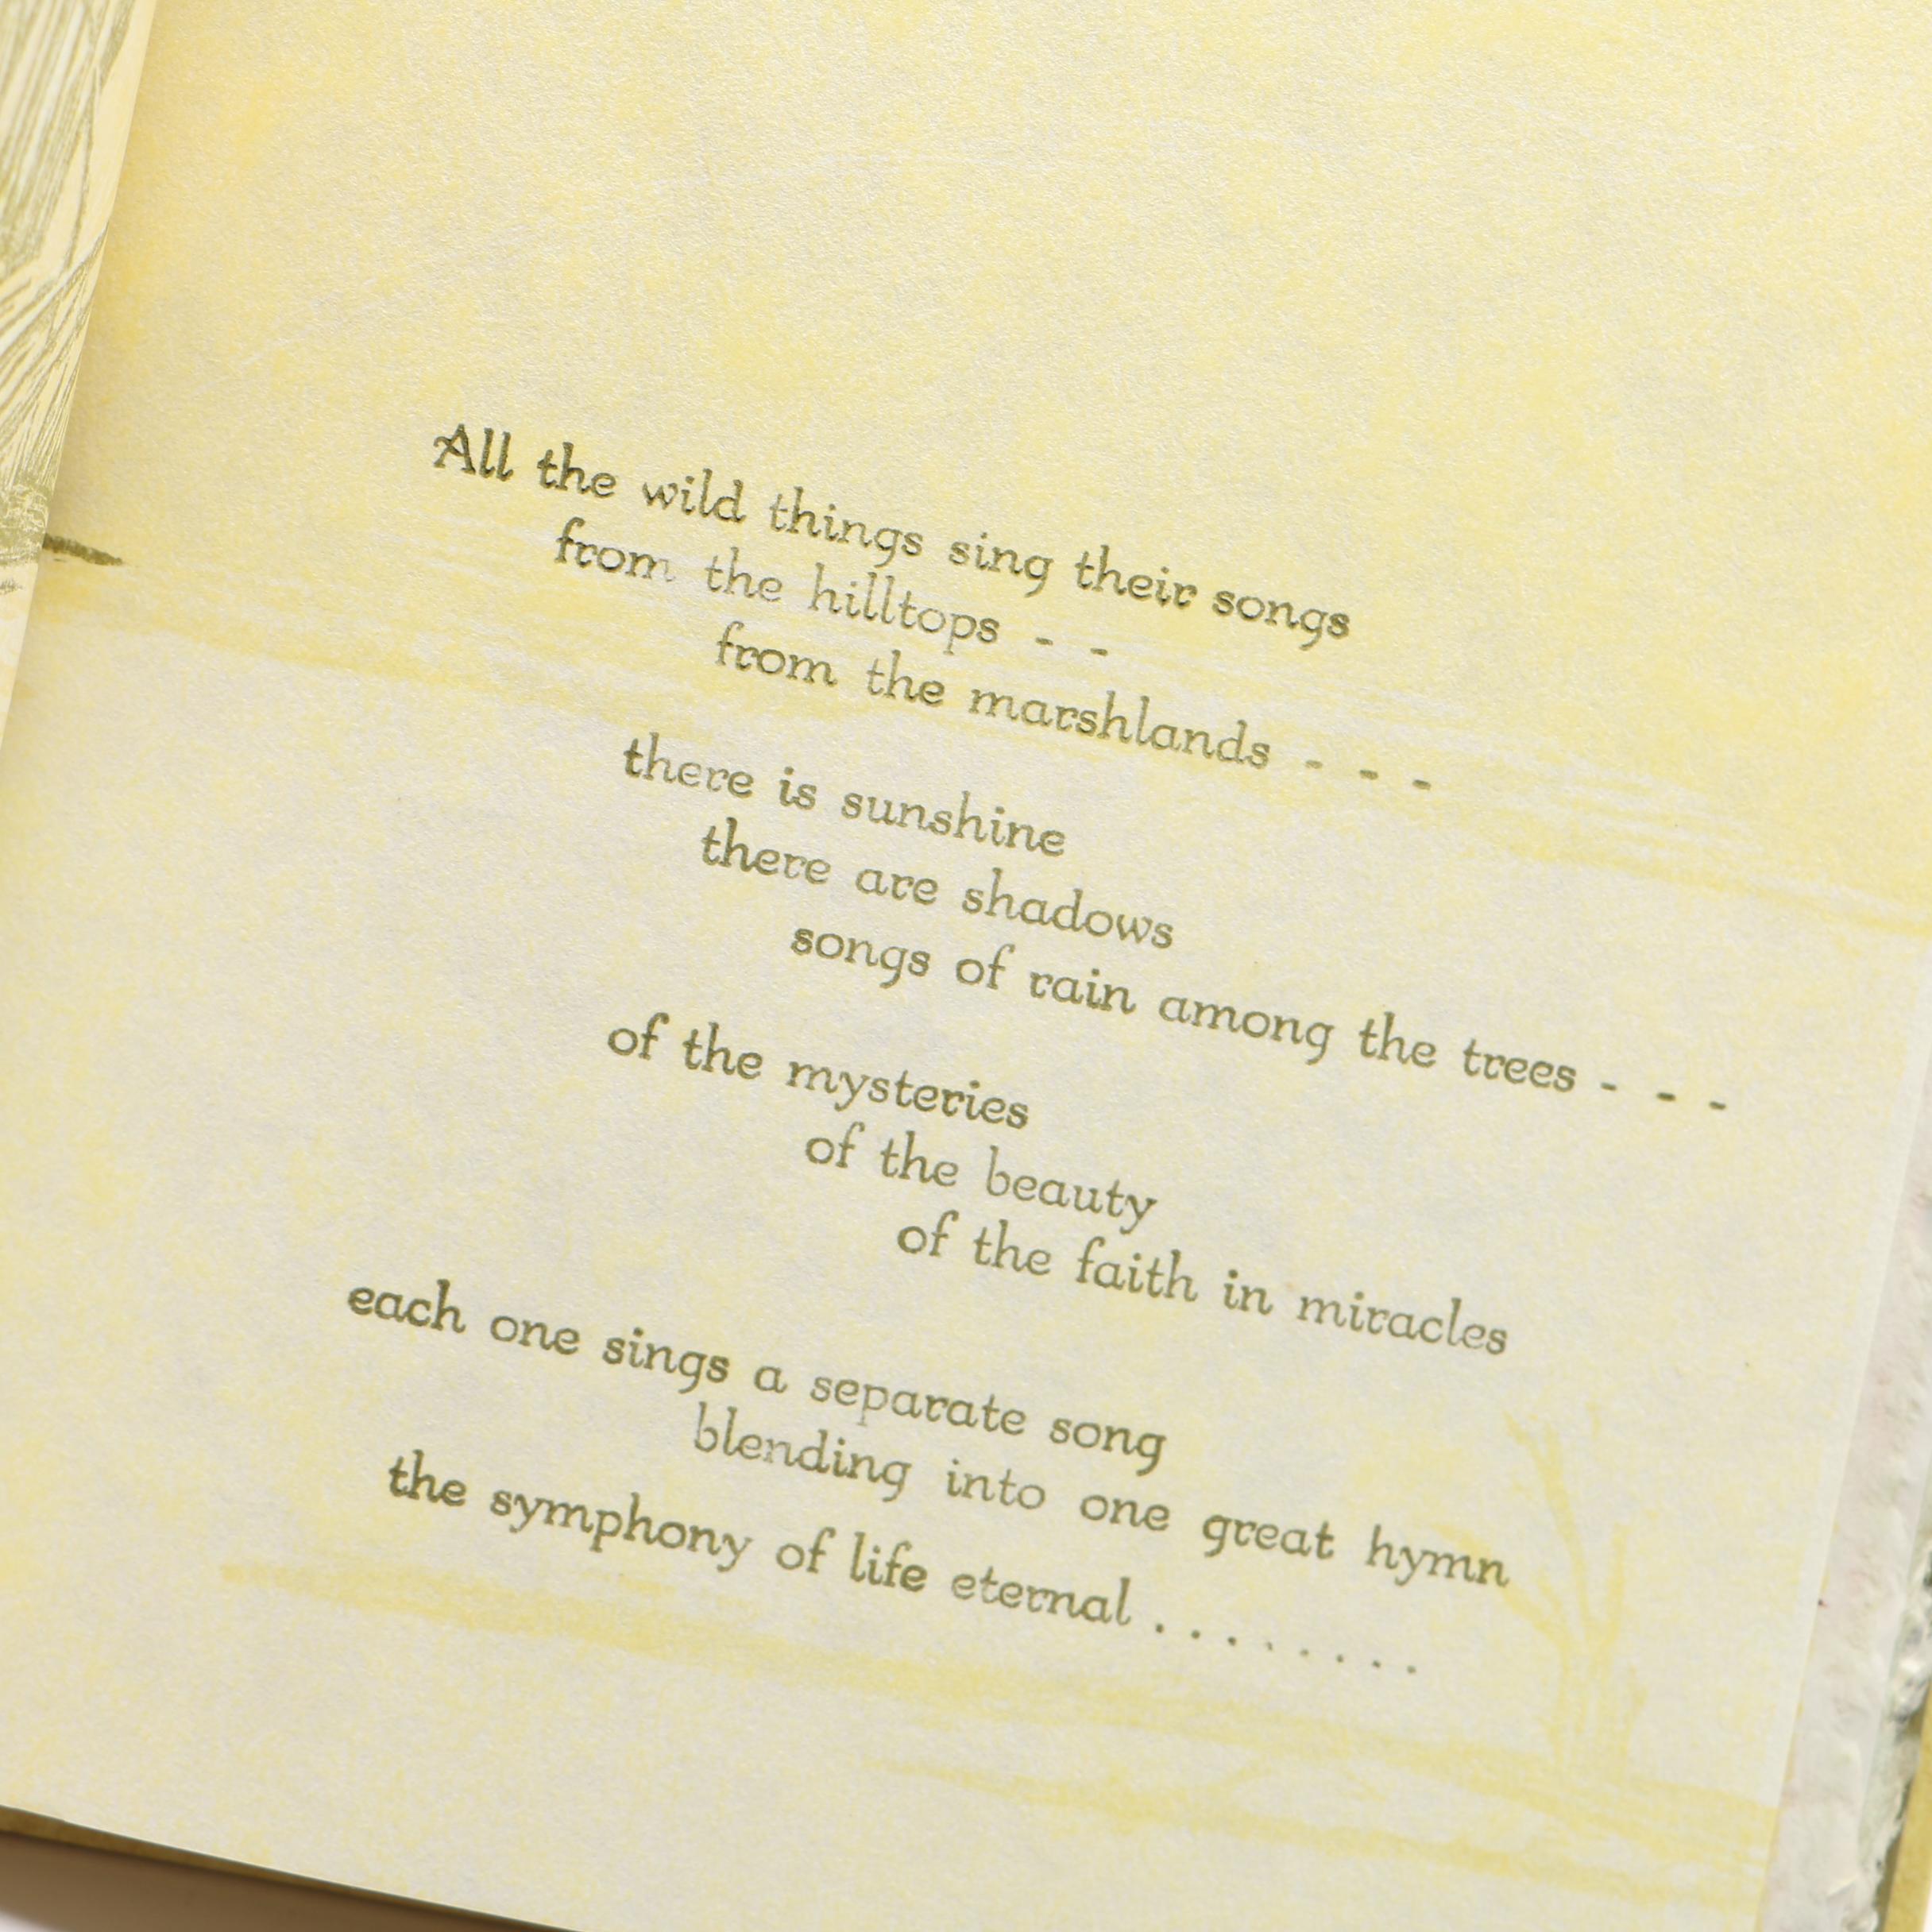 All the wild things sing their songs
from the hilltops - -
from the marshlands - - -
there is sunshine
there are shadows
songs of rain among the trees - - -
of the mysteries
of the beauty
of the faith in miracles
each one sings a separate song
blending into one great hymn
the symphony of life eternal . . . . . . . .